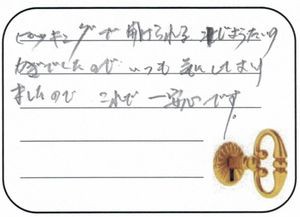 ピッキングで開けられる
カギでしたので いつも気にしており
ましたので これで一安心です。